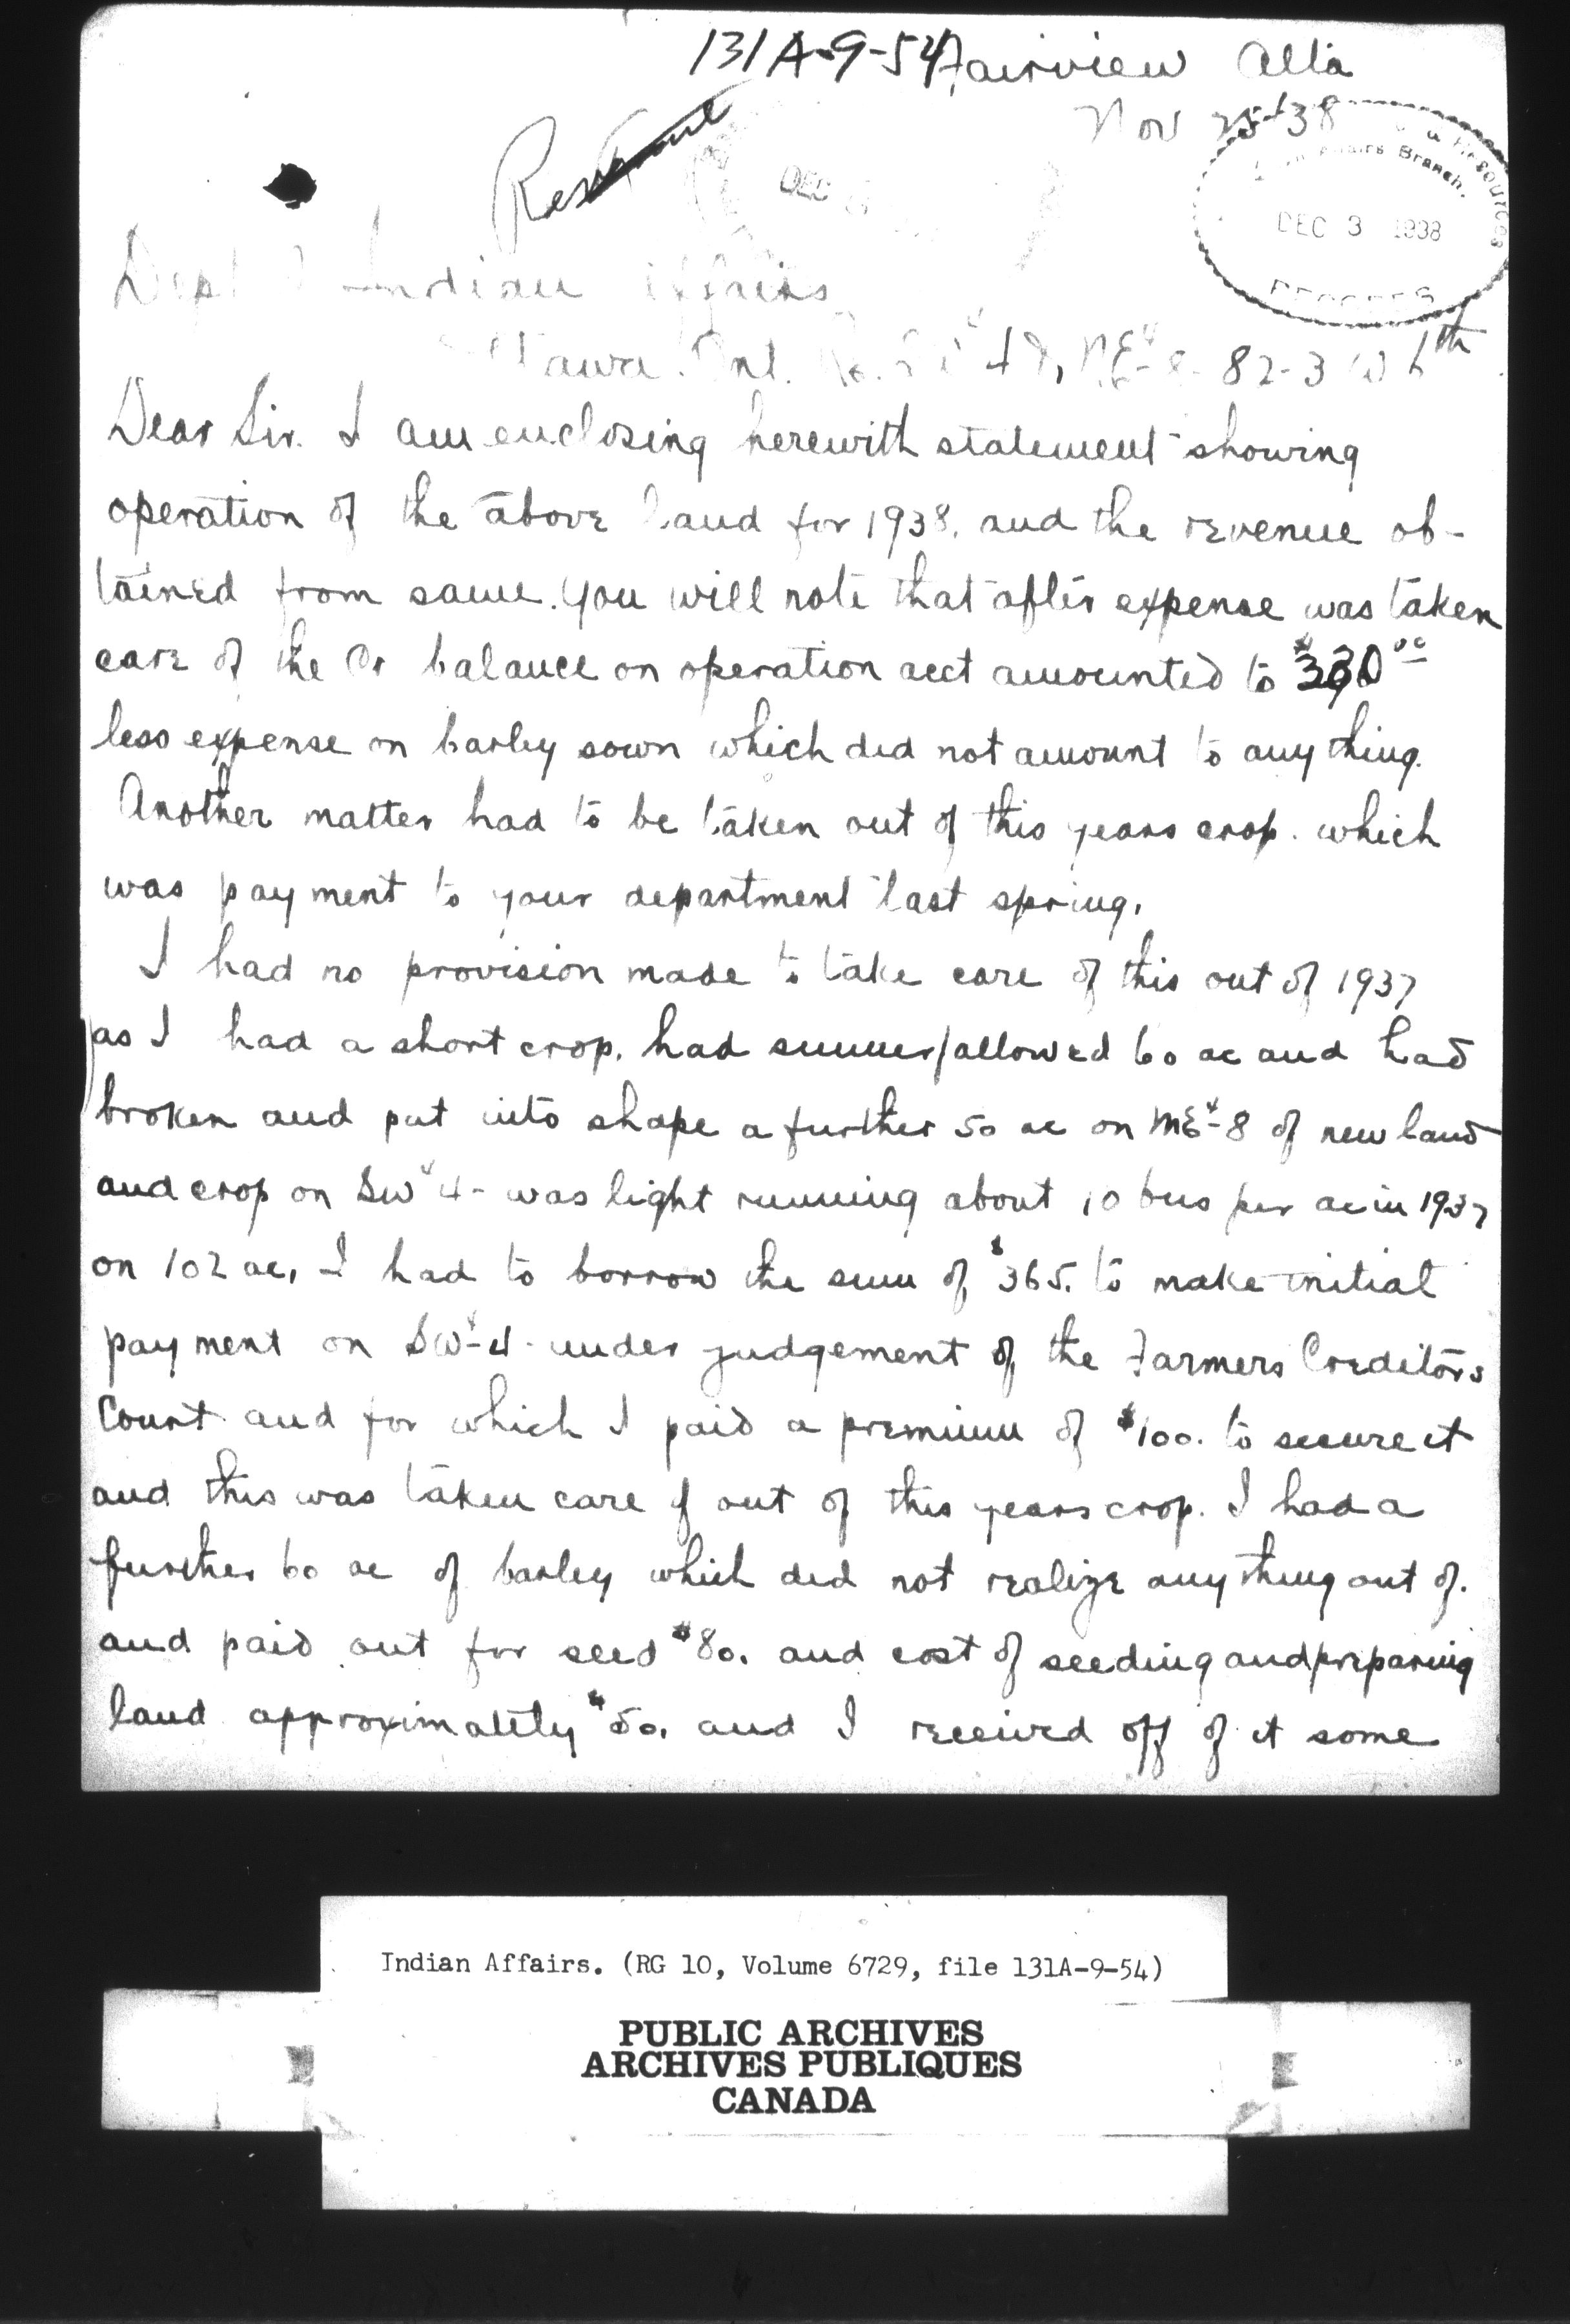 131A-9-54 Fairview Alta
Nov 25-38
Affairs Branch.
DEC
DEC 3 1938
Dept Indian Affairs
Ont. 4 & NE¼-8-82-3 W 6th
Dear Sir. I am enclosing herewith statement showing
operation of the above land for 1938. and the revenue ob-
tained from same. you will note that after expense was taken
care of the Cr balance on operation acct amounted to
less expense on barley sown which did not amount to any thing.
Another matter had to be taken out of this years crop. which
was payment to your department last spring.
I had no provision made to take care of this out of 1937
as I had a short crop. had summerfallowed 60 ac and had
broken and put into shape a further 50 ac on NE¼-8 of new land
and crop on SW¼ 4- was light running about 10 bus per ac in 1937
on 102 ac, I had to borrow the sum of $365. to make initial
payment on SW¼-4- under judgement of the Farmers Creditors
Court and for which I paid a premium of $100. to secure it
and this was taken care of out of this years crop. I had a
further 60 ac of barley which did not realize any thing out of.
and paid out for seed $80. and cost of seeding and preparing
land approximately $50. and I received off of it some
Indian Affairs. (RG 10, Volume 6729, file 131A-9-54)
PUBLIC ARCHIVES
ARCHIVES PUBLIQUES
CANADA